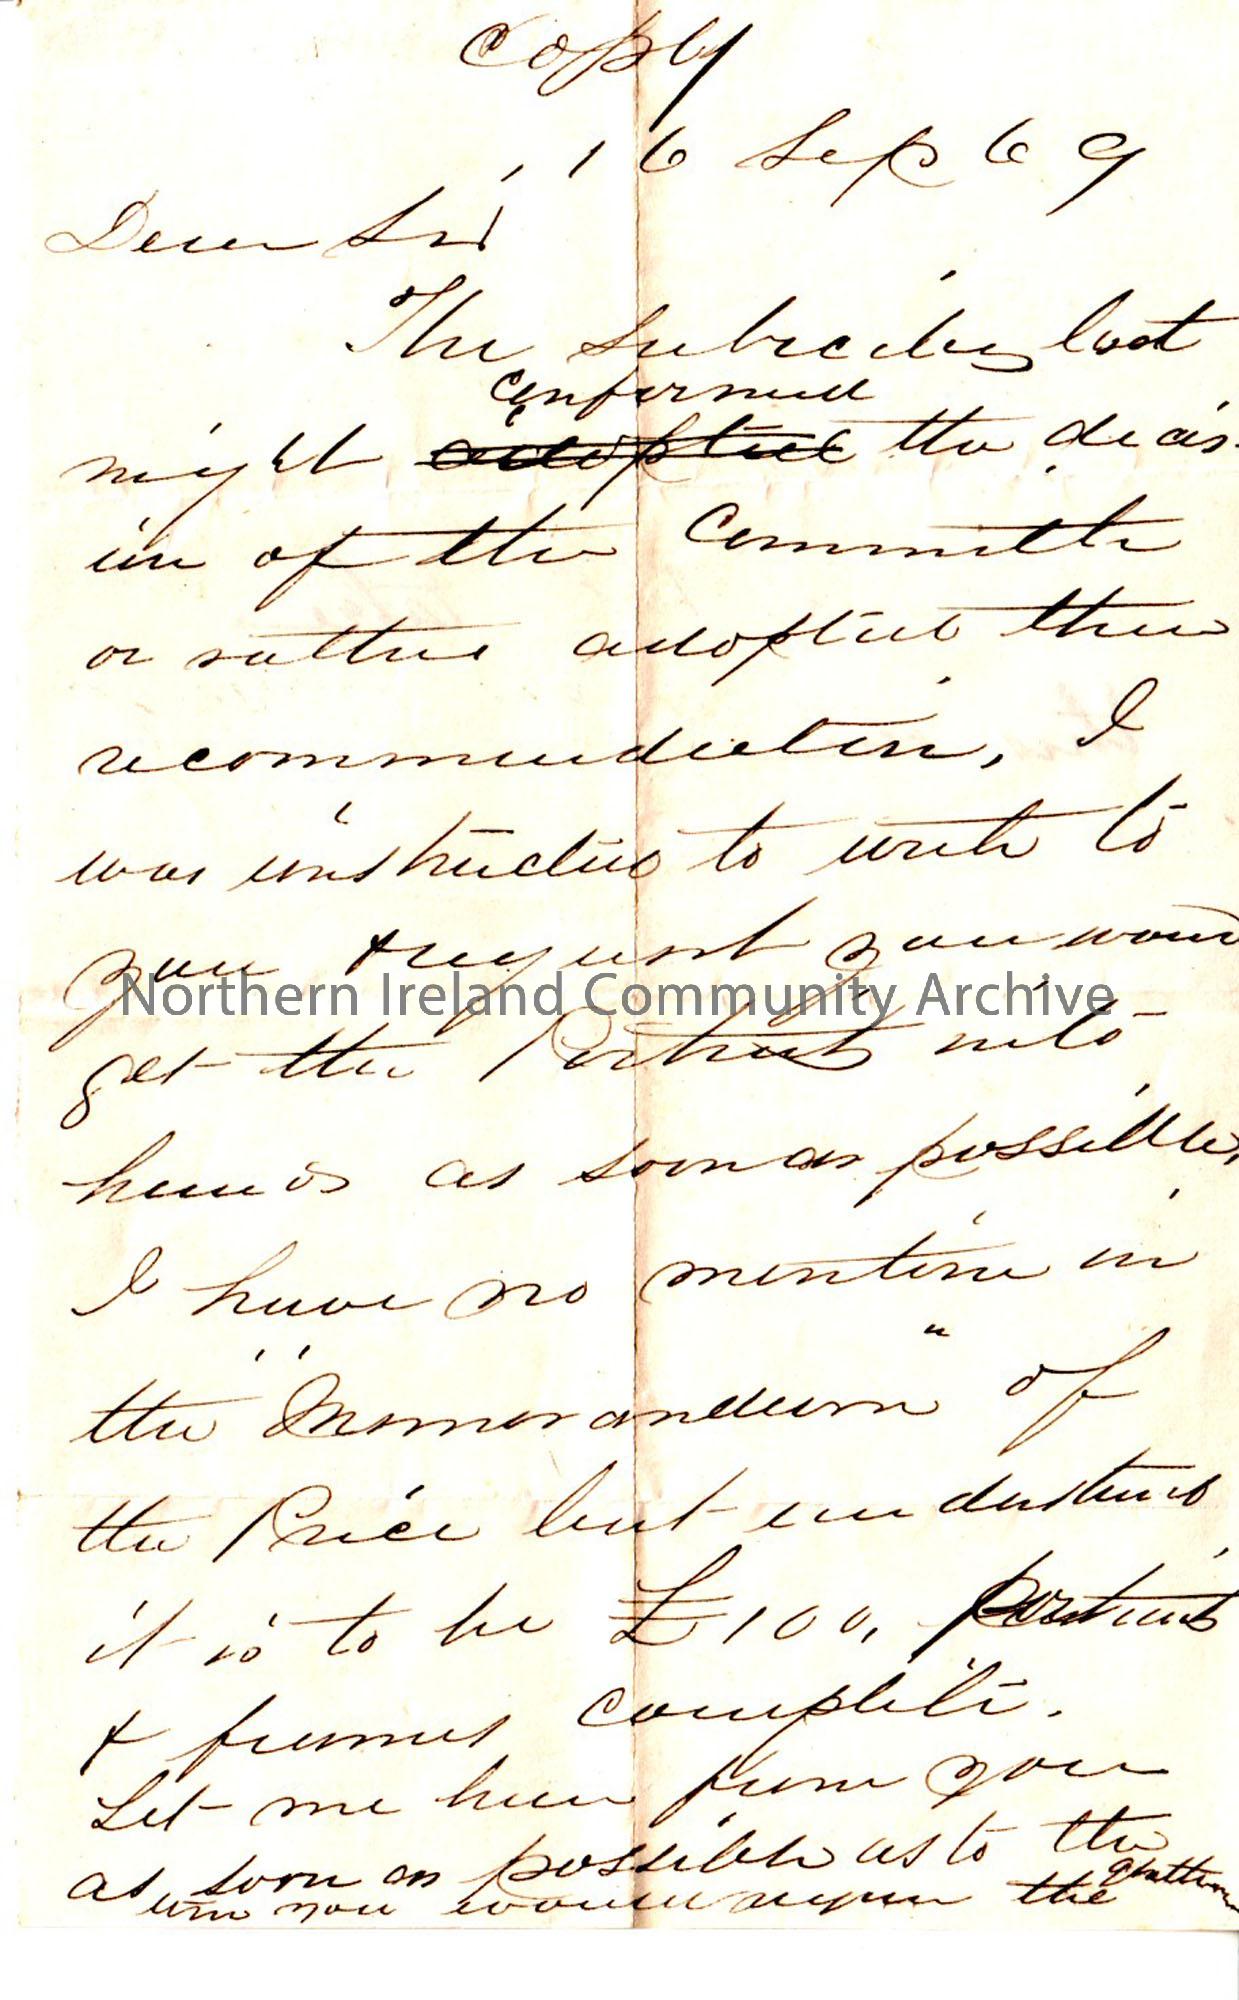 Copy
16 Sep 69
Dear Sir
The Subscribers last
confirmed
night adopted the decis-
ion of the Committee
or rather adopted their
recommendation, I
was instructed to write to
you & request you would
get the Portrait into
hands as soon as possible,
I have no mention in
the "Memorandum" of
the Price but understand
it is to be £100, portrait
& frames complete.
Let me hear from you
as soon as possible as to the
time you would require the gentleman
Northern Ireland Community Archive